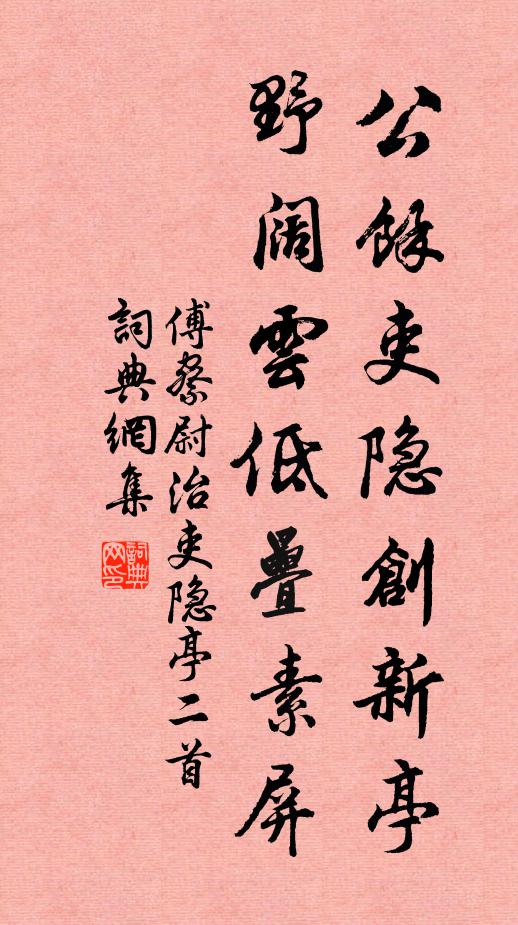 公餘吏隐創新亭
野阔雲低疊素屏
傅察尉治吏隐亭二首
詞典網集
詞典網印